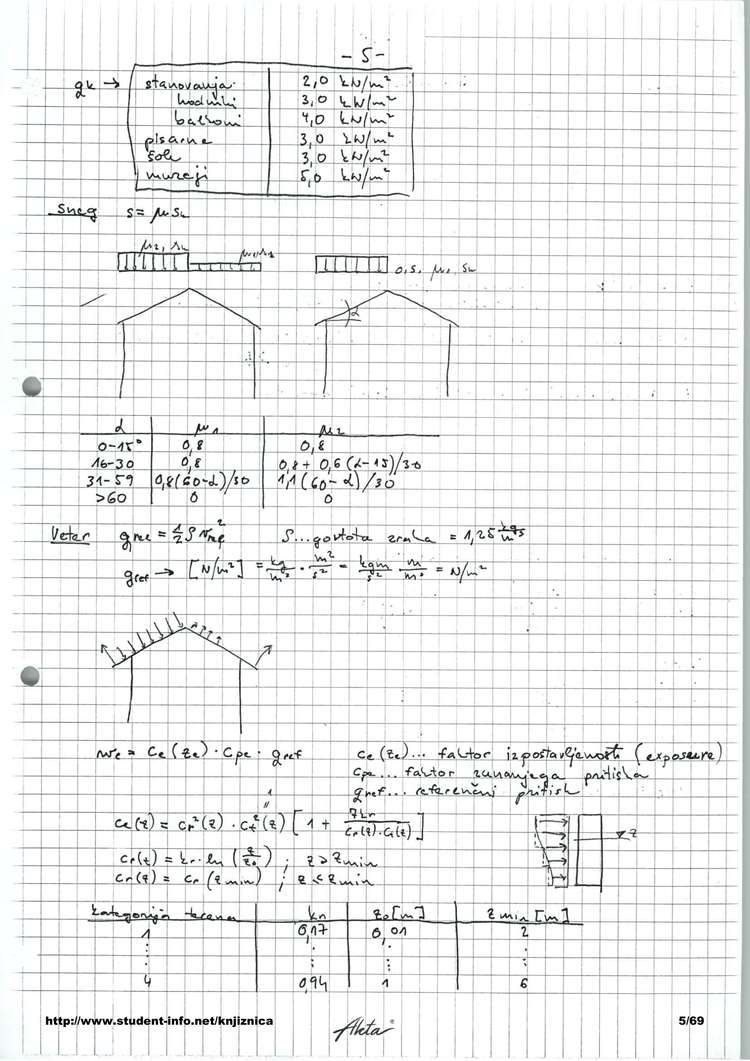 - 5 -
qk → stanovanja 2,0 kN/m²
hodniki 3,0 kN/m²
balkoni 4,0 kN/m²
pisarne 3,0 kN/m²
šole 3,0 kN/m²
muzeji 5,0 kN/m²
Sneg s = μ sk
μ2, sk μ1, sk
0,5, μ1, sk
α
α μ1 μ2
0-15° 0,8 0,8
16-30 0,8 0,8 + 0,6 (α-15)/30
31-59 0,8(60-α)/30 1,1(60-α)/30
>60 0 0
Veter qref = 1/2 ρ vref² ρ...gostota zraka = 1,25 kg/m³
qref → [N/m²] = kg/m³ · m²/s² = kgm/s² · m/m³ = N/m²
we = ce(ze) · cpe · qref ce(ze)... faktor izpostavljenosti (exposure)
cpe... faktor zunanjega pritiska
qref... referenčni pritisk
1
ce(z) = cr²(z) · ct²(z) [1 + 7kr/cr(z)·ct(z)]
z
cr(z) = kr · ln (z/z0) ; z > zmin
cr(z) = cr (zmin) ; z < zmin
kategorija terena kr z0 [m] z min [m]
1 0,17 0,01 2
4 0,94 1 6
http://www.student-info.net/knjiznica Akta® 5/69